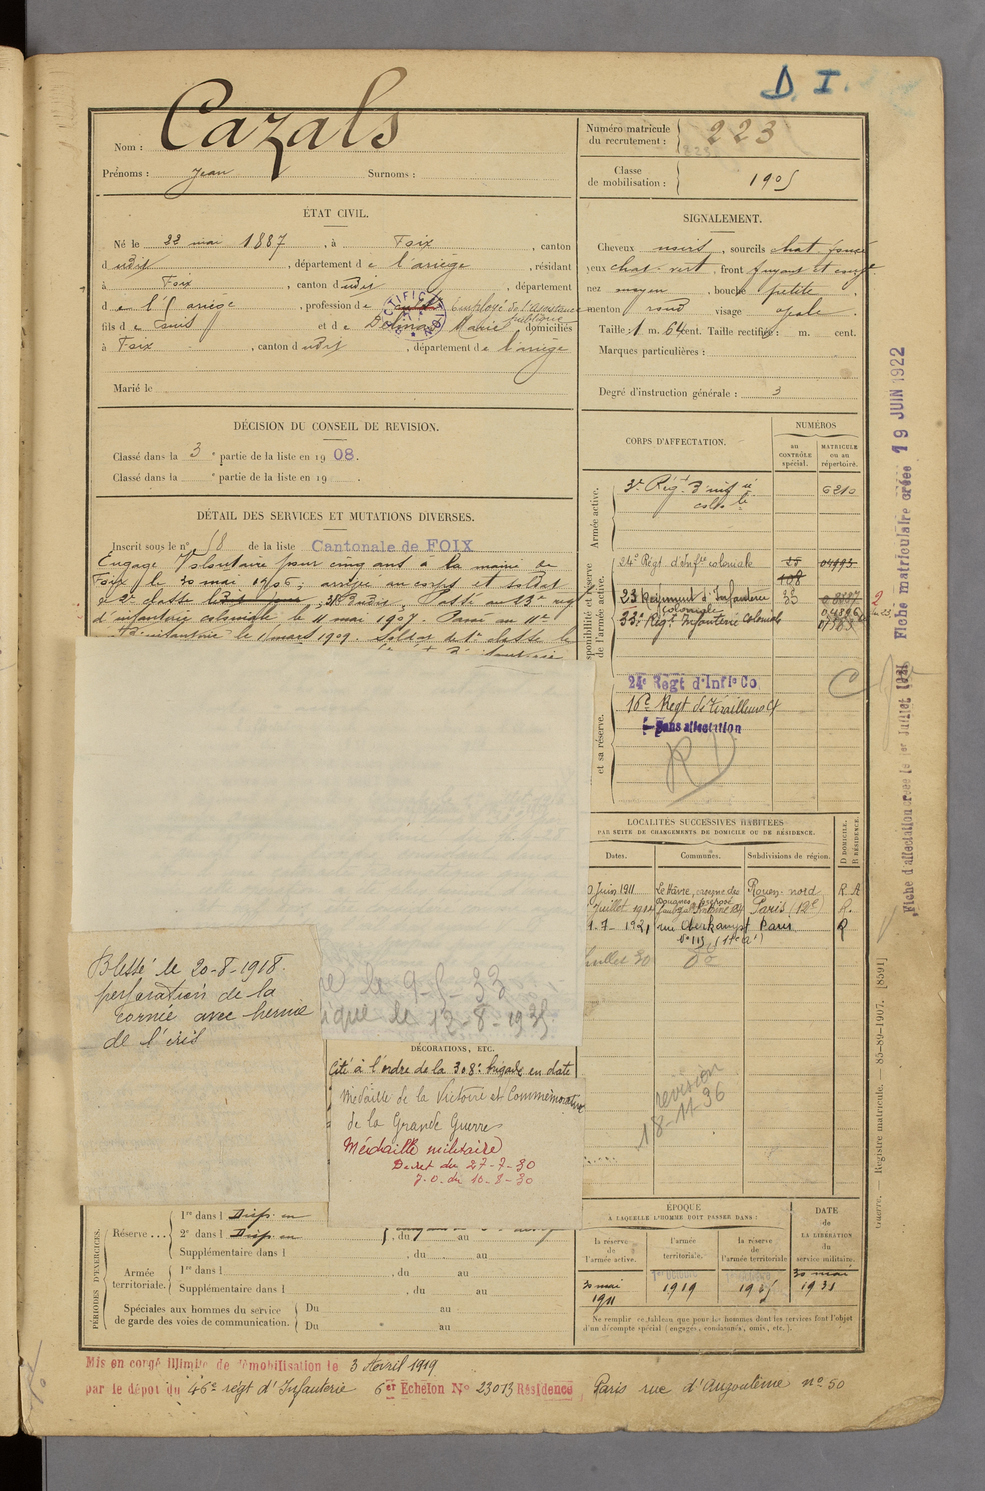 D. I.
Nom : Cazals
Prénoms : Jean Surnoms :
Numéro matricule du recrutement : 223
Classe de mobilisation : 1905
ÉTAT CIVIL.
Né le 22 mai 1887, à Foix, canton
dudit, département de l'ariège, résidant
à Foix, canton dudit, département
de l'Ariège, profession de Employé de l'Assistance publique
fils de Louis et de Marie domiciliés
à Foix, canton dudit, département de l'ariège
Marié le
SIGNALEMENT.
Cheveux noirs, sourcils chat foncé
yeux chat. vert, front fuyant et
nez moyen, bouche petite
menton rond visage ovale.
Taille : 1 m. 64 cent. Taille rectifiée : m. cent.
Marques particulières :
Degré d'instruction générale : 3
DÉCISION DU CONSEIL DE REVISION.
Classé dans la 3e partie de la liste en 1908.
Classé dans la e partie de la liste en 19 .
DÉTAIL DES SERVICES ET MUTATIONS DIVERSES.
Inscrit sous le n° 58 de la liste Cantonale de FOIX
Engagé Volontaire pour cinq ans à la mairie de
Foix, le 30 mai 1906; arrivé au corps et soldat
de 2e classe ledit jour, dudit. Passé au 13e regt
d'infanterie coloniale le 11 mai 1907. Passé au 11e
d'infanterie le 11 mars 1909. Soldat de 1e classe le
CORPS D'AFFECTATION.
NUMÉROS
au CONTRÔLE spécial.
MATRICULE ou au répertoire.
Armée active.
3e Régt d'infie colole 6210
Disponibilité et réserve de l'armée active.
24e Régt d'Infie coloniale
23 Régiment d'Infanterie coloniale
33e Régt Infanterie Coloniale
et sa réserve.
24e Régt d'Infie Co
16e Regt de Tirailleurs
Sans affectation
R D
LOCALITÉS SUCCESSIVES HABITÉES
PAR SUITE DE CHANGEMENTS DE DOMICILE OU DE RÉSIDENCE.
Dates. Communes. Subdivisions de région. D DOMICILE. R RÉSIDENCE.
Juin 1911 Le Hâvre, caserne des Douanes Rouen-nord R. A
Juillet 1914 Paris (12e) R.
1-7-1921 rue Oberkampf Paris R
n° 113 (11e ar)
Juillet 30 do
revision
18-11-36
Blessé le 20-8-1918.
perforation de la
cornée avec hernie
de l'iris
le 9-5-33
ique le 12-8-1935
DÉCORATIONS, ETC.
Cité à l'ordre de la 308e brigade en date
Médaille de la Victoire et Commémorative
de la Grande Guerre
Médaille militaire
Décret du 27-7-30
J.O. du 10-8-30
PÉRIODES D'EXERCICES.
Réserve... 1re dans l Disp. en
2e dans l Disp. en , du au
Supplémentaire dans l , du au
Armée territoriale. 1re dans l , du au
Supplémentaire dans l , du au
Spéciales aux hommes du service de garde des voies de communication. Du au
Du au
ÉPOQUE
À LAQUELLE L'HOMME DOIT PASSER DANS :
la réserve de l'armée active. l'armée territoriale. la réserve de l'armée territoriale
DATE de LA LIBÉRATION du service militaire.
30 mai 1911 1919 1925 30 mai 1931
Ne remplir ce tableau que pour les hommes dont les services font l'objet
d'un décompte spécial (engagés, condamnés, omis, etc.).
Mis en congé illimité de démobilisation le 3 Avril 1919
par le dépôt du 46e régt d'Infanterie 6er Echelon N° 23013 Résidence Paris rue d'Angoulême n° 50
Fiche d'affectation créée le 1er Juillet 1921 Fiche matriculaire créée 19 JUIN 1922
Guerre. — Registre matricule. — 85-89-1907. [8591]